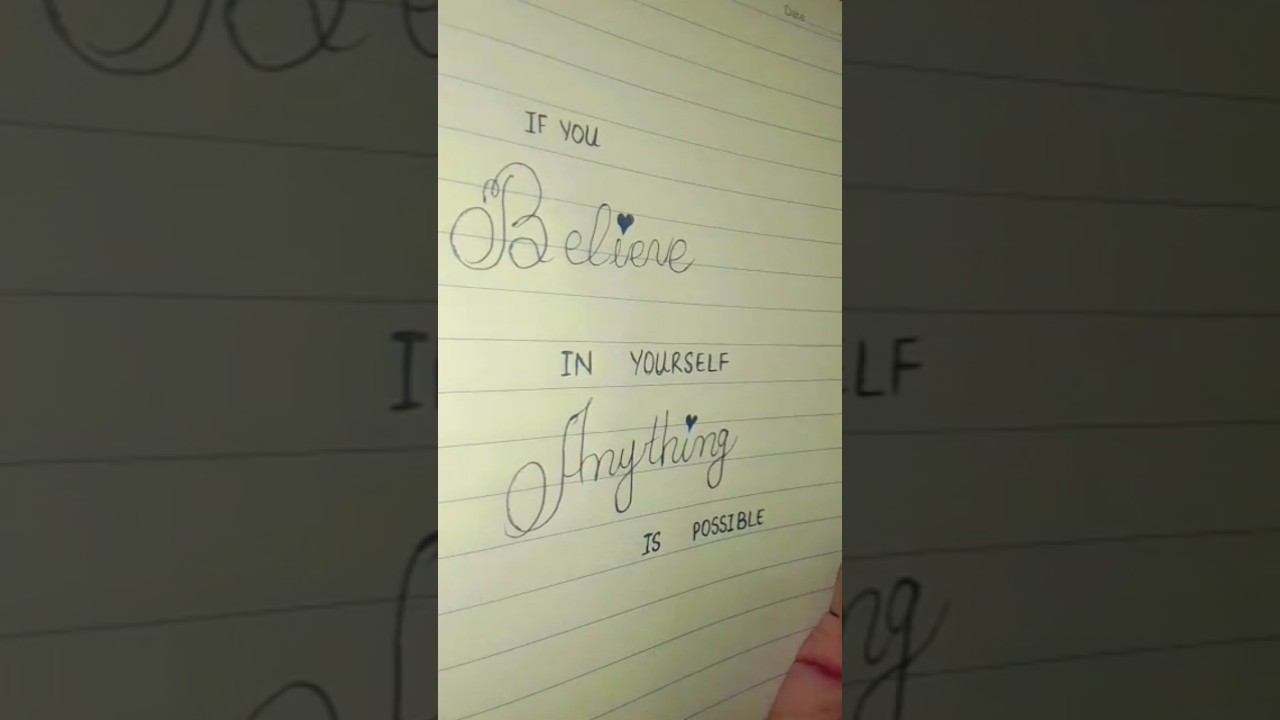 Date
IF YOU
Believe
IN YOURSELF
Anything
IS POSSIBLE